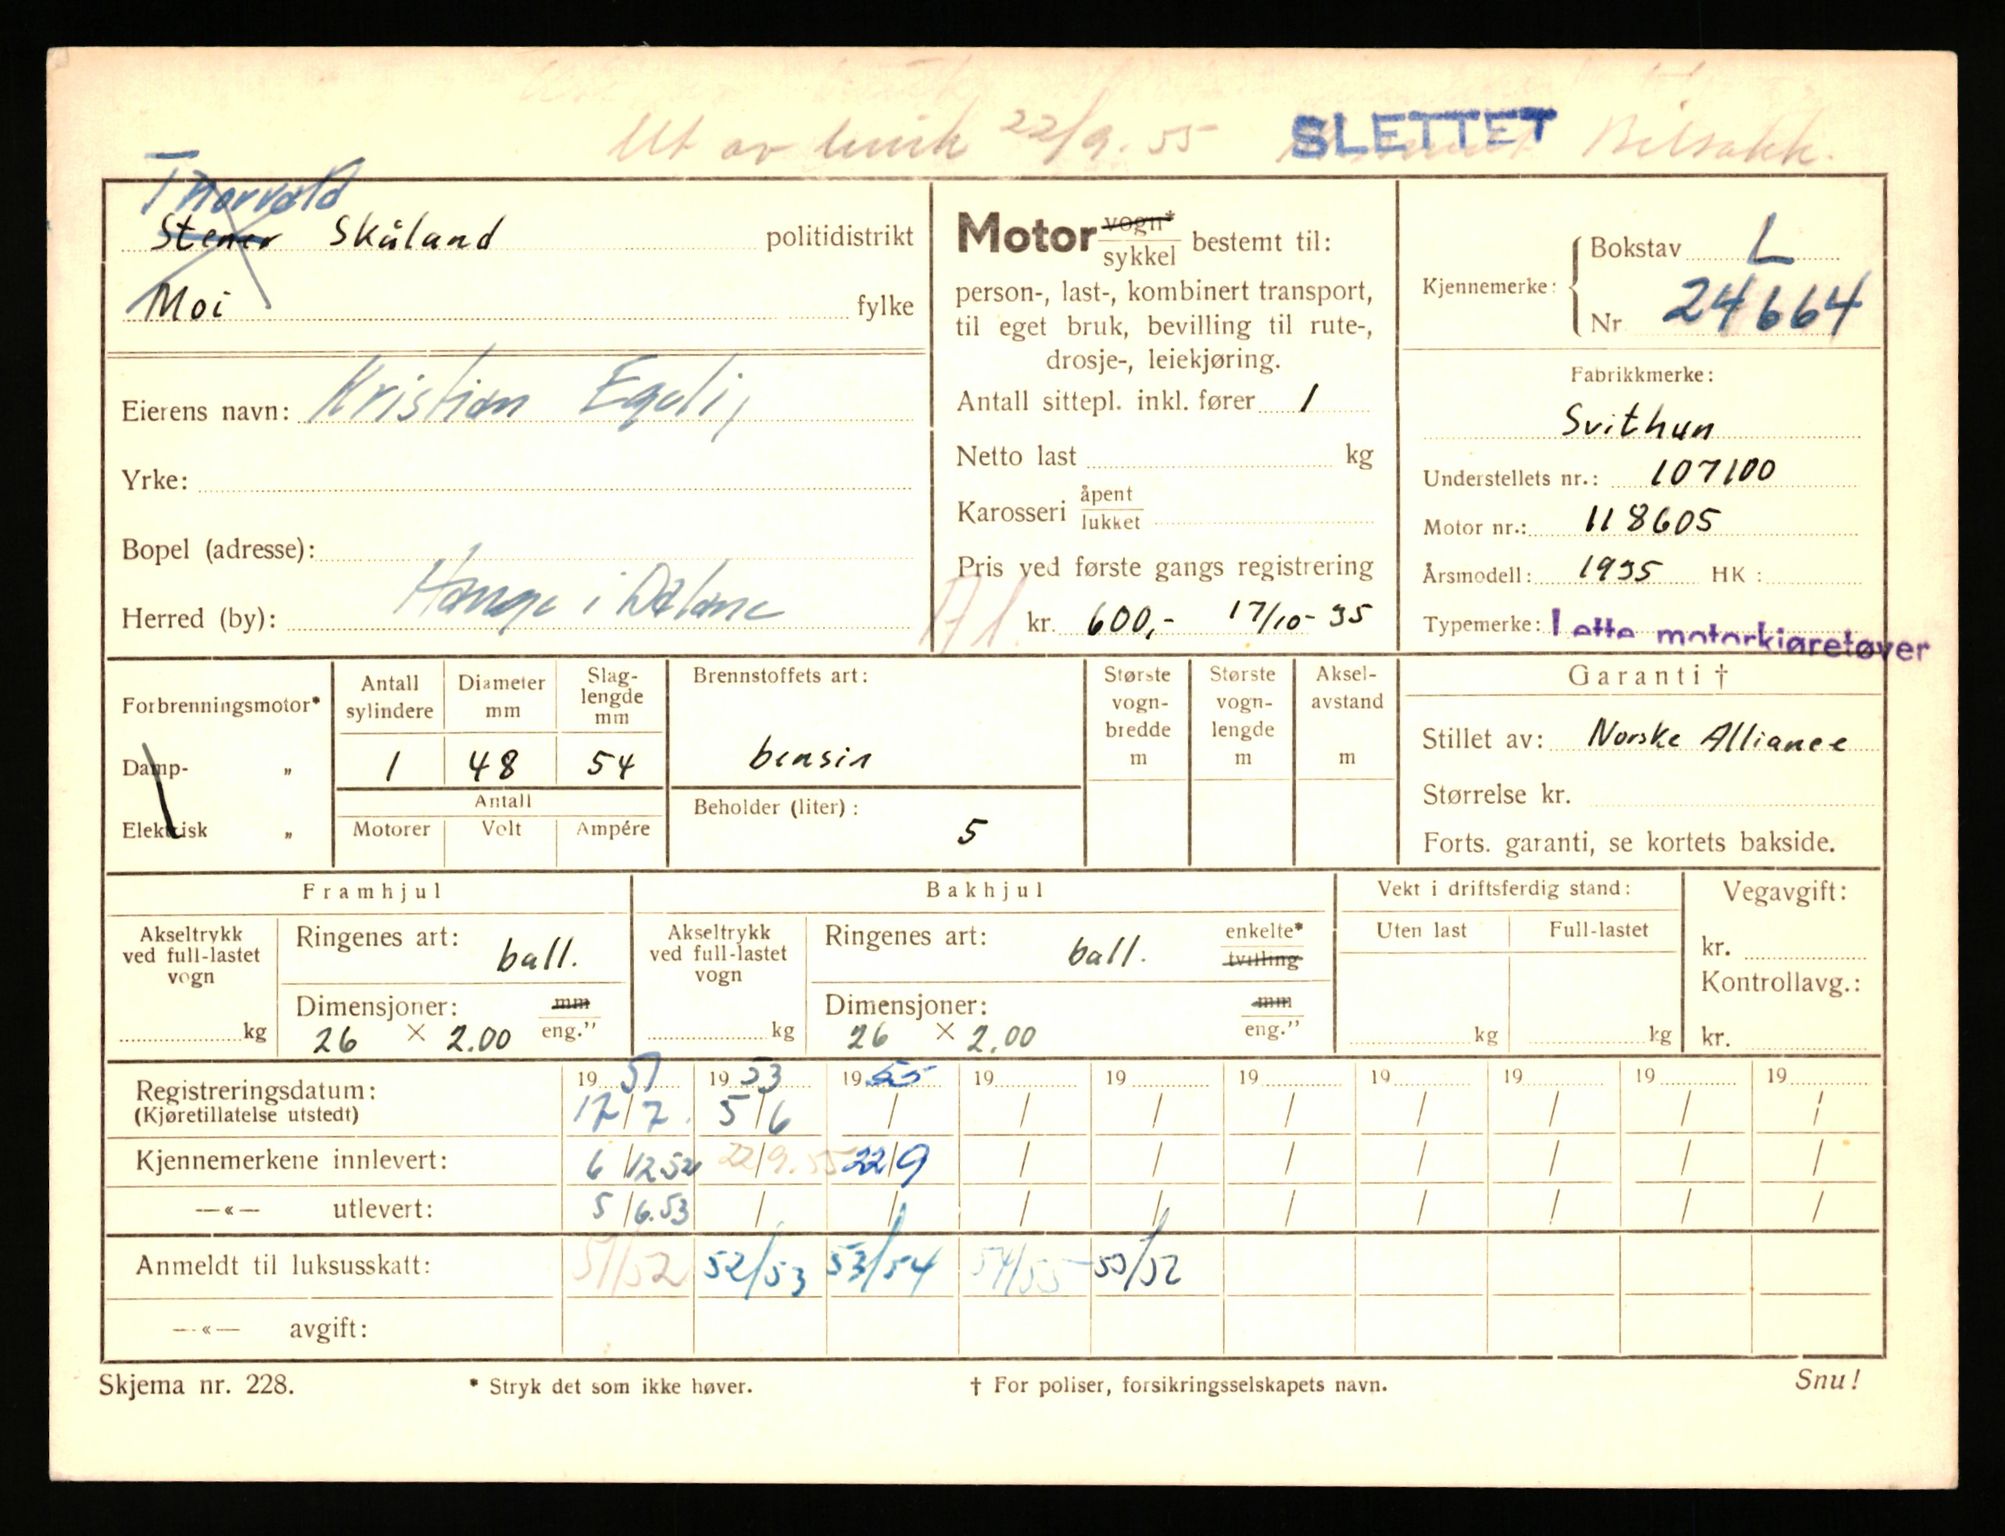 Ut av bruk 22/9.55 SLETTET Bilsakk.
Thorvald
Stener Skåland politidistrikt
Moi fylke
Eierens navn: Kristian Egeli,
Yrke:
Bopel (adresse):
Herred (by): Hauge i Dalane
Motor vogn*
sykkel bestemt til:
person-, last-, kombinert transport,
til eget bruk, bevilling til rute-,
drosje-, leiekjøring.
Antall sittepl. inkl. fører 1
Netto last kg
Karosseri åpent
lukket
Pris ved første gangs registrering
kr. 600,- 17/10-35
Kjennemerke: Bokstav L
Nr 24664
Fabrikkmerke:
Svithun
Understellets nr.: 107100
Motor nr.: 118605
Årsmodell: 1935 HK:
Typemerke: Lette motorkjøretøyer
Forbrenningsmotor*
Damp- „
Elektrisk „
Antall
sylindere
1
Diameter
mm
48
Slag-
lengde
mm
54
Antall
Motorer Volt Ampére
Brennstoffets art:
bensin
Beholder (liter):
5
Største
vogn-
bredde
m
Største
vogn-
lengde
m
Aksel-
avstand
m
Garanti †
Stillet av: Norske Alliance
Størrelse kr.
Forts. garanti, se kortets bakside.
Framhjul
Akseltrykk
ved full-lastet
vogn
kg
Ringenes art:
ball.
Dimensjoner: mm
26 × 2.00 eng."
Bakhjul
Akseltrykk
ved full-lastet
vogn
kg
Ringenes art: enkelte*
ball. tvilling
Dimensjoner: mm
26 × 2.00 eng."
Vekt i driftsferdig stand:
Uten last Full-lastet
kg kg
Vegavgift:
kr.
Kontrollavg.:
kr.
Registreringsdatum: 19 51 19 53 19 55 19 19 19 19 19 19 19
(Kjøretillatelse utstedt) 12/7. 5/6 / / / / / / / /
Kjennemerkene innlevert: 6/12.52 22/9.55 22/9 / / / / / / /
—«— utlevert: 5/6.53 / / / / / / / / /
Anmeldt til luksusskatt: 51/52 52/53 53/54 54/55
—«— avgift:
Skjema nr. 228. * Stryk det som ikke høver. † For poliser, forsikringsselskapets navn. Snu!